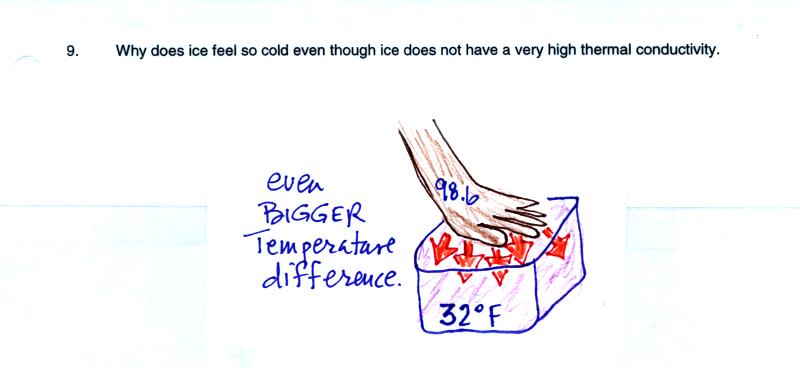 9. Why does ice feel so cold even though ice does not have a very high thermal conductivity.
even
BIGGER
Temperature
difference.
98.6
32°F